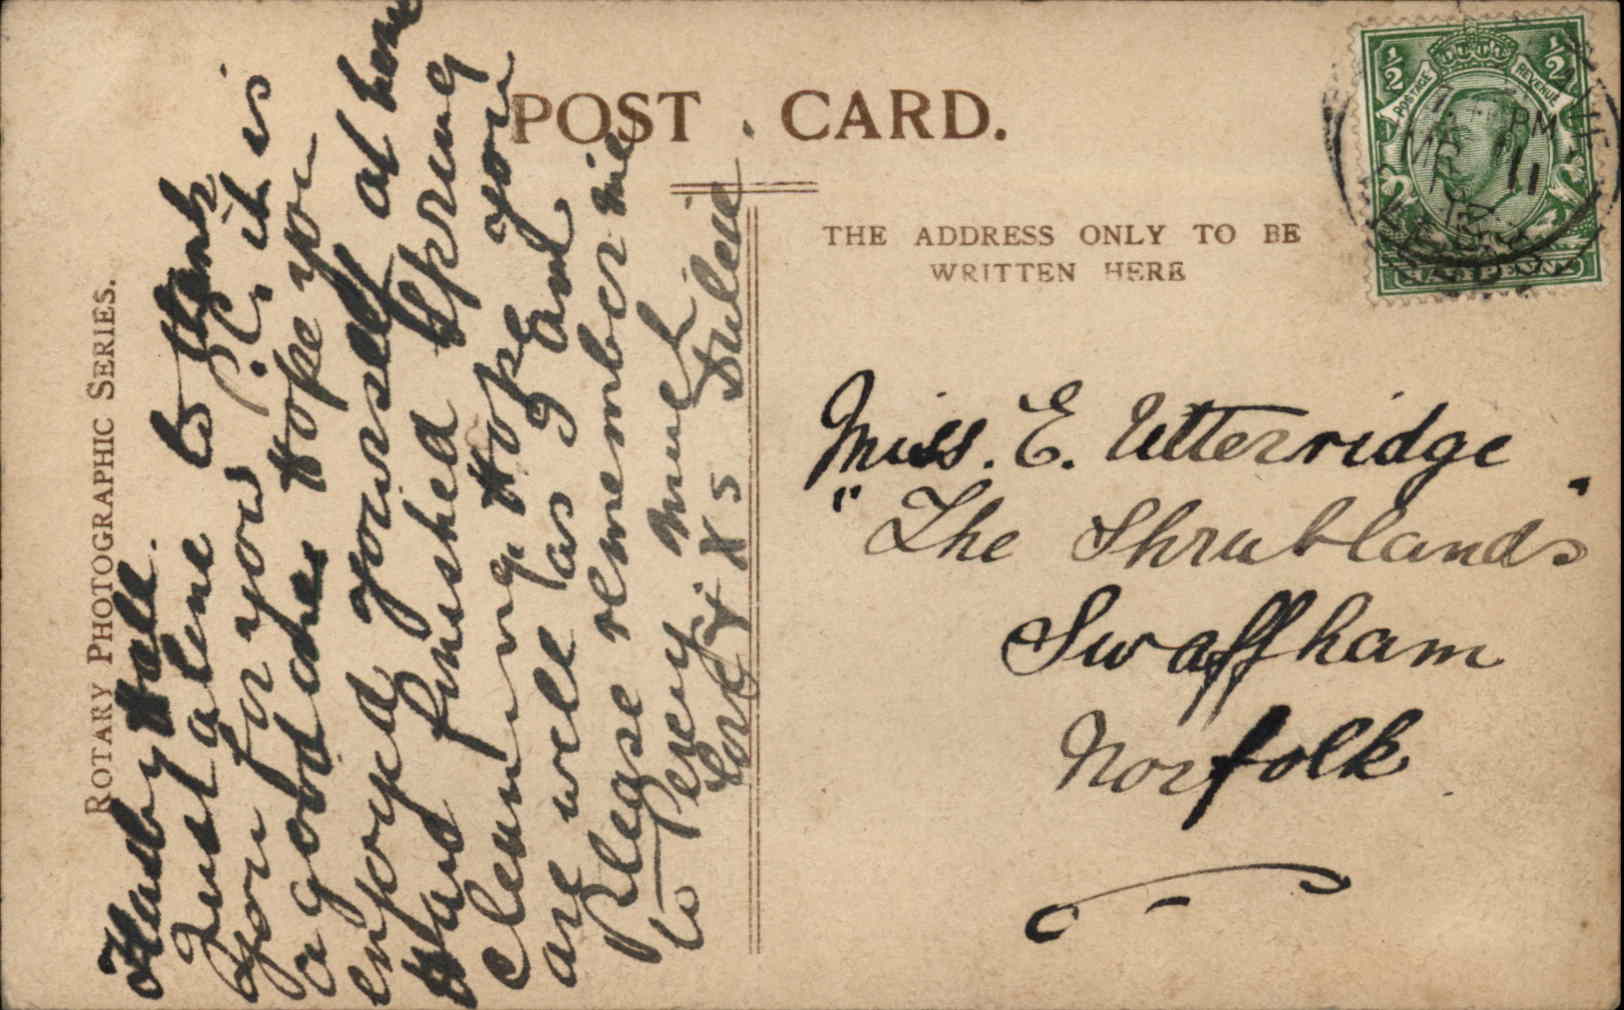 ROTARY PHOTOGRAPHIC SERIES.
POST CARD.
THE ADDRESS ONLY TO BE
WRITTEN HERE
½ ½
POSTAGE REVENUE
HALFPENNY
PM
11
Hall.
Just a line to thank
you for your P.C. it is
a good Hope you
enjoyed yourself at home
Have finished Spring
cleaning. Hope you
are well as I am
Please remember me
to Percy. much
Love X X s
Miss. E. Utterridge
"The Shrublands"
Swaffham
Norfolk